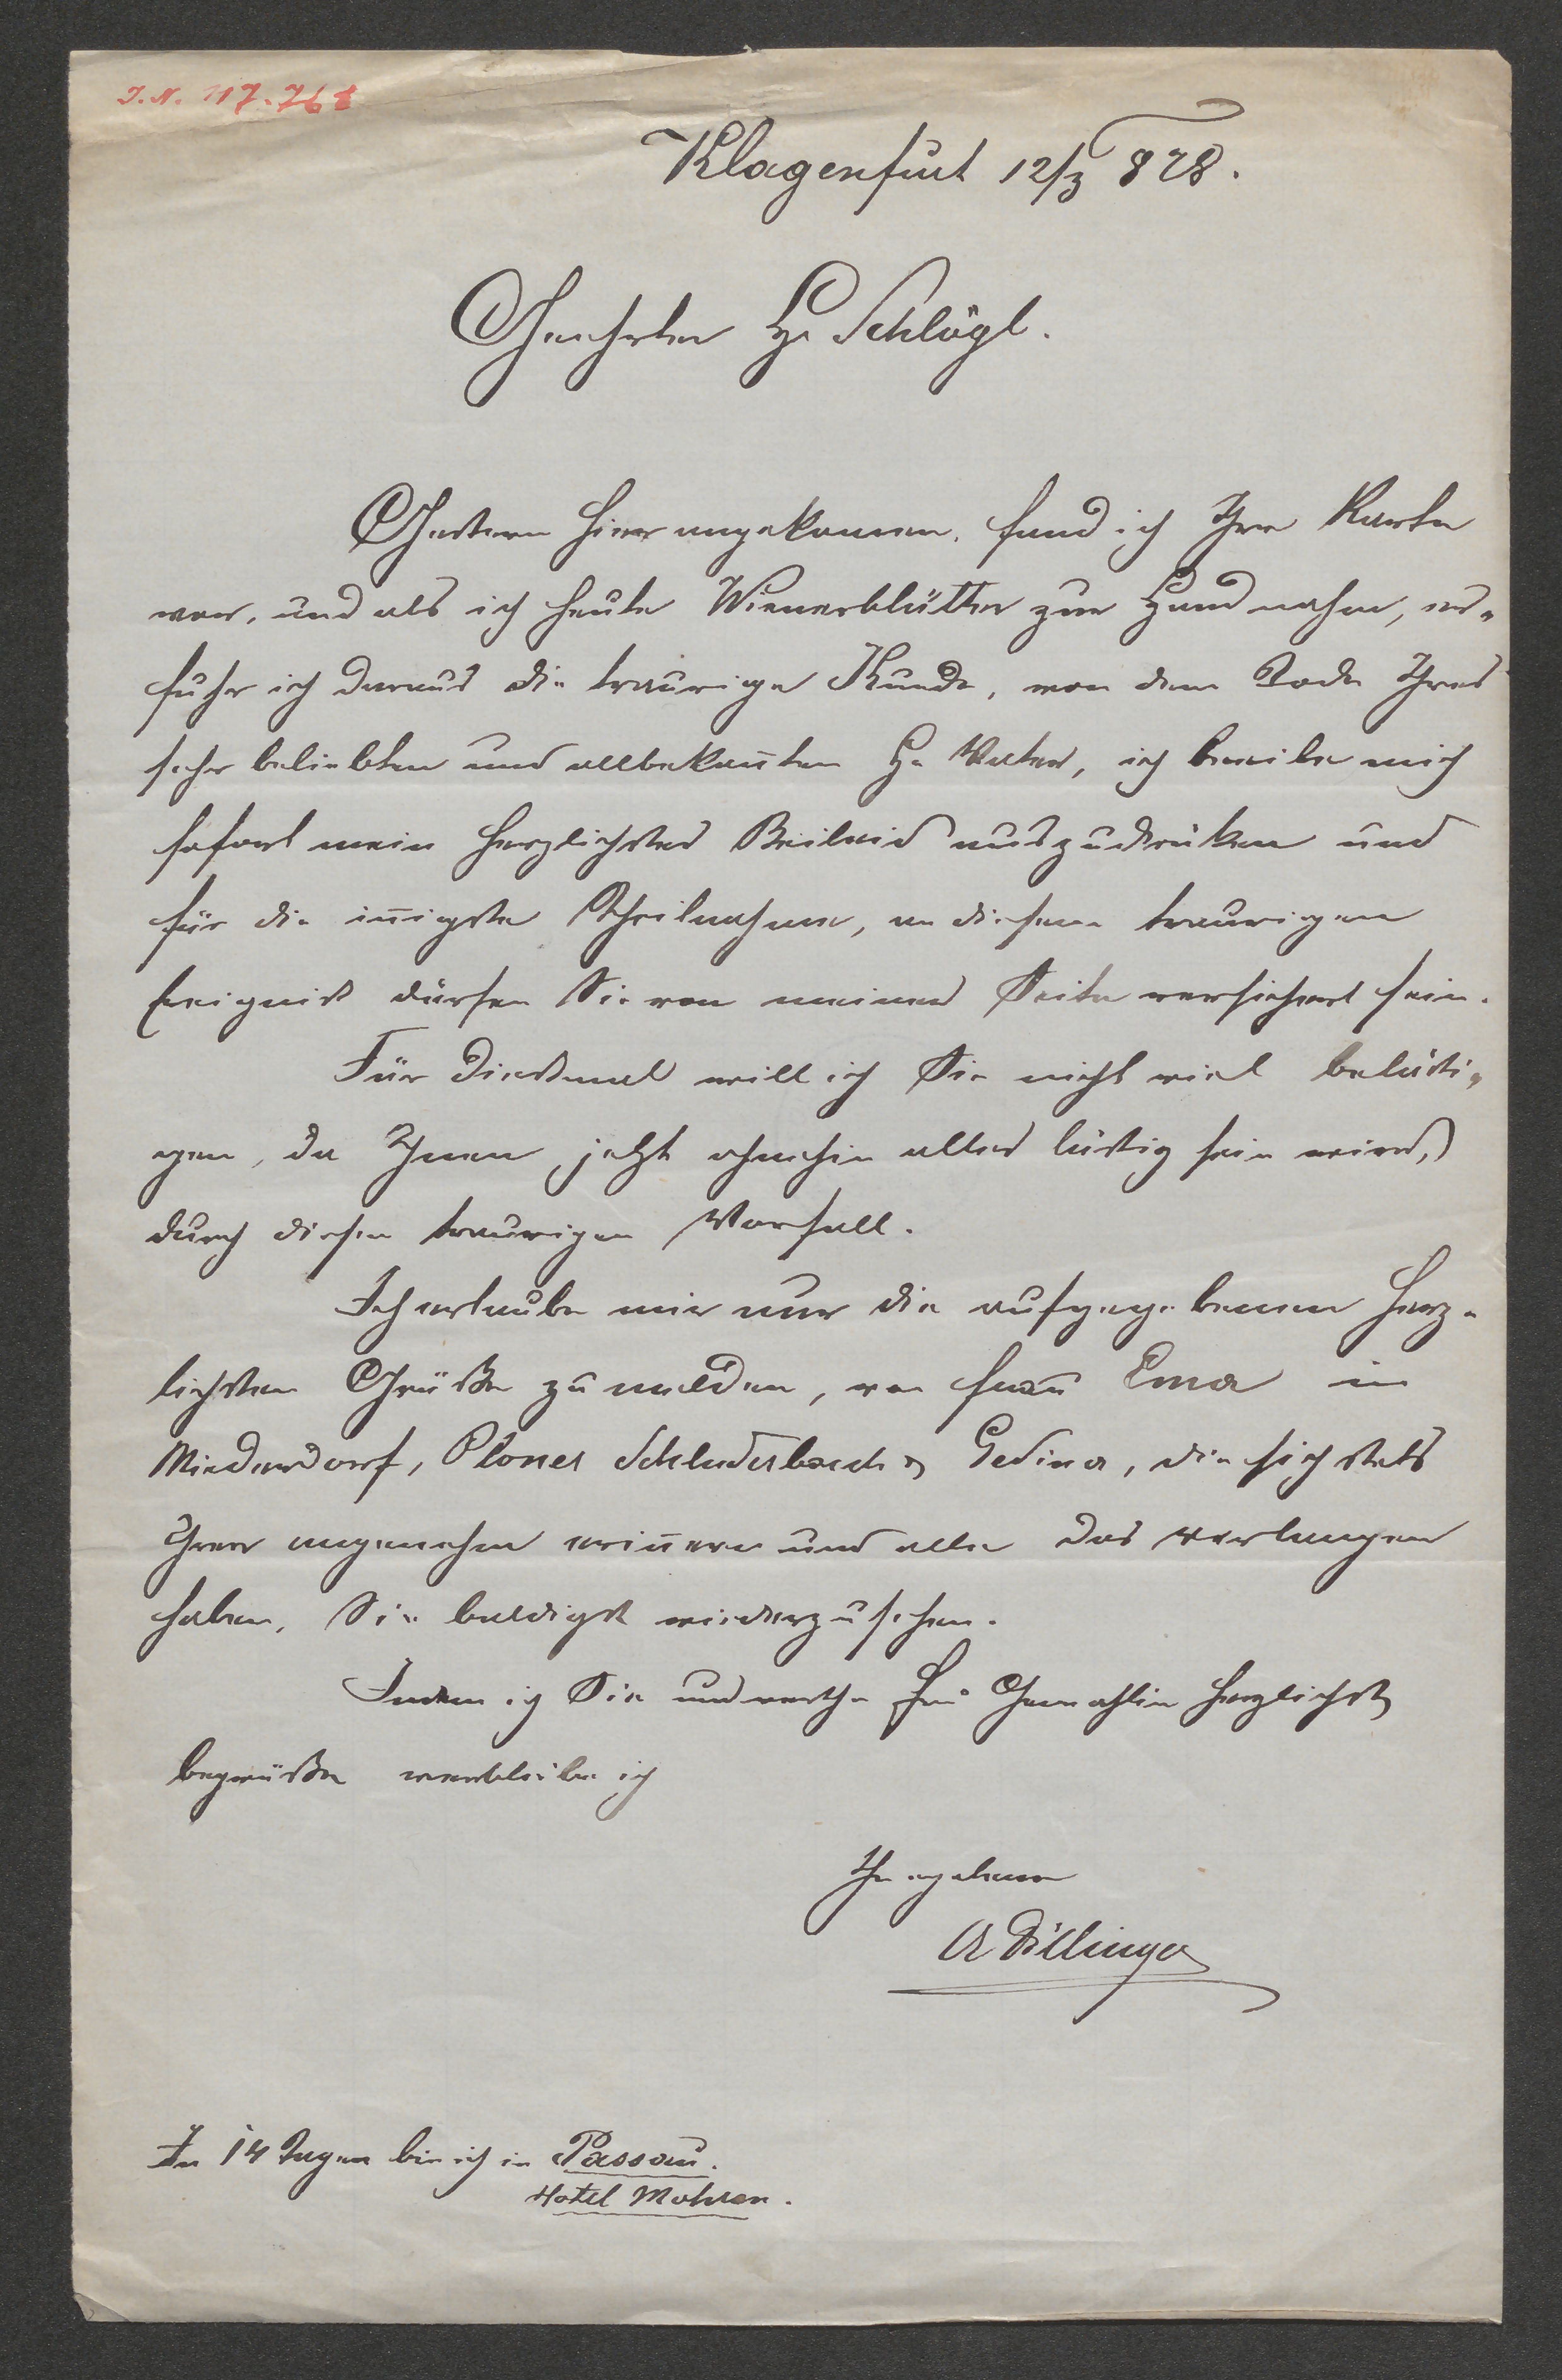 J.N. 117.768
Klagenfurt 12/3 878.
Geehrter H. Schlögl.
Gestern hier angekommen, fand ich Ihre Karte
vor, und als ich heute Wienerblätter zur Hand nahm, er-
fuhr ich daraus die traurige Kunde, von dem Tode Ihres
sehr beliebten und allbekan̄ten H. Vater, ich beeile mich
sofort mein herzlichstes Beileid auszudrüken und
für die in̄igste Theilnahme, an diesem traurigen
Ereigniß dürfen Sie von meiner Seite versichert sein.
Für dießmal will ich Sie nicht viel belästi-
gen, da Ihnen jetzt ohnehin alles lästig sein wird,
durch diesen traurigen Vorfall.
Ich erlaube mir nur die aufgegebenen herz-
lichsten Grüße zu melden, von Frau Ema in
Niederdorf, Ploner Schluderbach & Gedina, die sich stets
Ihrer angenehm erin̄ern und alle das Verlangen
haben, Sie baldigst wiederzusehen.
Indem ich Sie und werthe Frau Gemahlin herzlichst
begrüße verbleibe ich
Ihr ergebener
A Dillinger
In 14 Tagen bin ich in Passau.
Hotel Mohren.